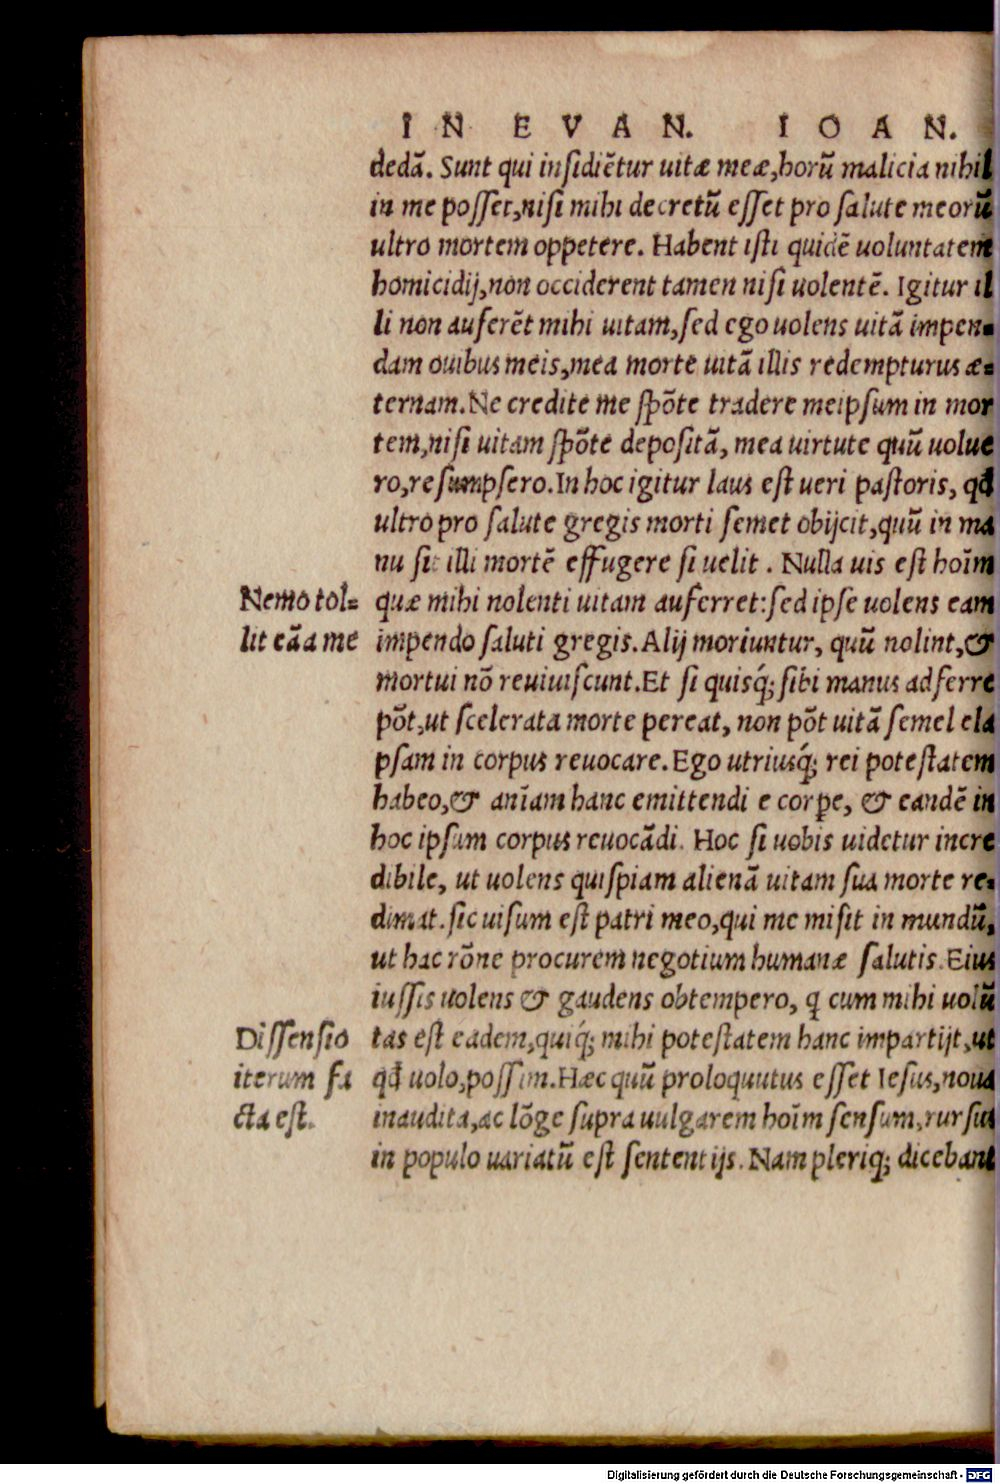 IN EVAN. IOAN.
dedā. Sunt qui insidiētur uitæ meæ, horū malicia nihil
in me posset, nisi mihi decretū esset pro salute meorū
ultro mortem oppetere. Habent isti quidē uoluntatem
homicidij, non occiderent tamen nisi uolentē. Igitur il
li non auferēt mihi uitam, sed ego uolens uitā impen-
dam ouibus meis, mea morte uitā illis redempturus æ-
ternam. Ne credite me spōte tradere meipsum in mor
tem, nisi uitam spōte depositā, mea uirtute quū uolue
ro, resumpsero. In hoc igitur laus est ueri pastoris, qđ
ultro pro salute gregis morti semet obijcit, quū in ma
nu sit illi mortē effugere si uelit. Nulla uis est hoīm
Nemo tol-
lit eā a me
quæ mihi nolenti uitam auferret: sed ipse uolens eam
impendo saluti gregis. Alij moriuntur, quū nolint, &
mortui nō reuiuiscunt. Et si quisq́; sibi manus adferre
pōt, ut scelerata morte pereat, non pōt uitā semel ela
psam in corpus reuocare. Ego utriusq́; rei potestatem
habeo, & anīam hanc emittendi e corꝑe, & eandē in
hoc ipsum corpus reuocādi. Hoc si uobis uidetur incre
dibile, ut uolens quispiam alienā uitam sua morte re-
dimat. sic uisum est patri meo, qui me misit in mundū,
ut hac rōne procurem negotium humanæ salutis. Eius
iussis uolens & gaudens obtempero, q cum mihi uolū
Dissensio
iterum fa
cta est.
tas est eadem, quiq́; mihi potestatem hanc impartijt, ut
qđ uolo, possim. Hæc quū proloquutus esset Iesus, noua
inaudita, ac lōge supra uulgarem hoīm sensum, rursus
in populo uariatū est sententijs. Nam pleriq; dicebant
Digitalisierung gefördert durch die Deutsche Forschungsgemeinschaft - DFG